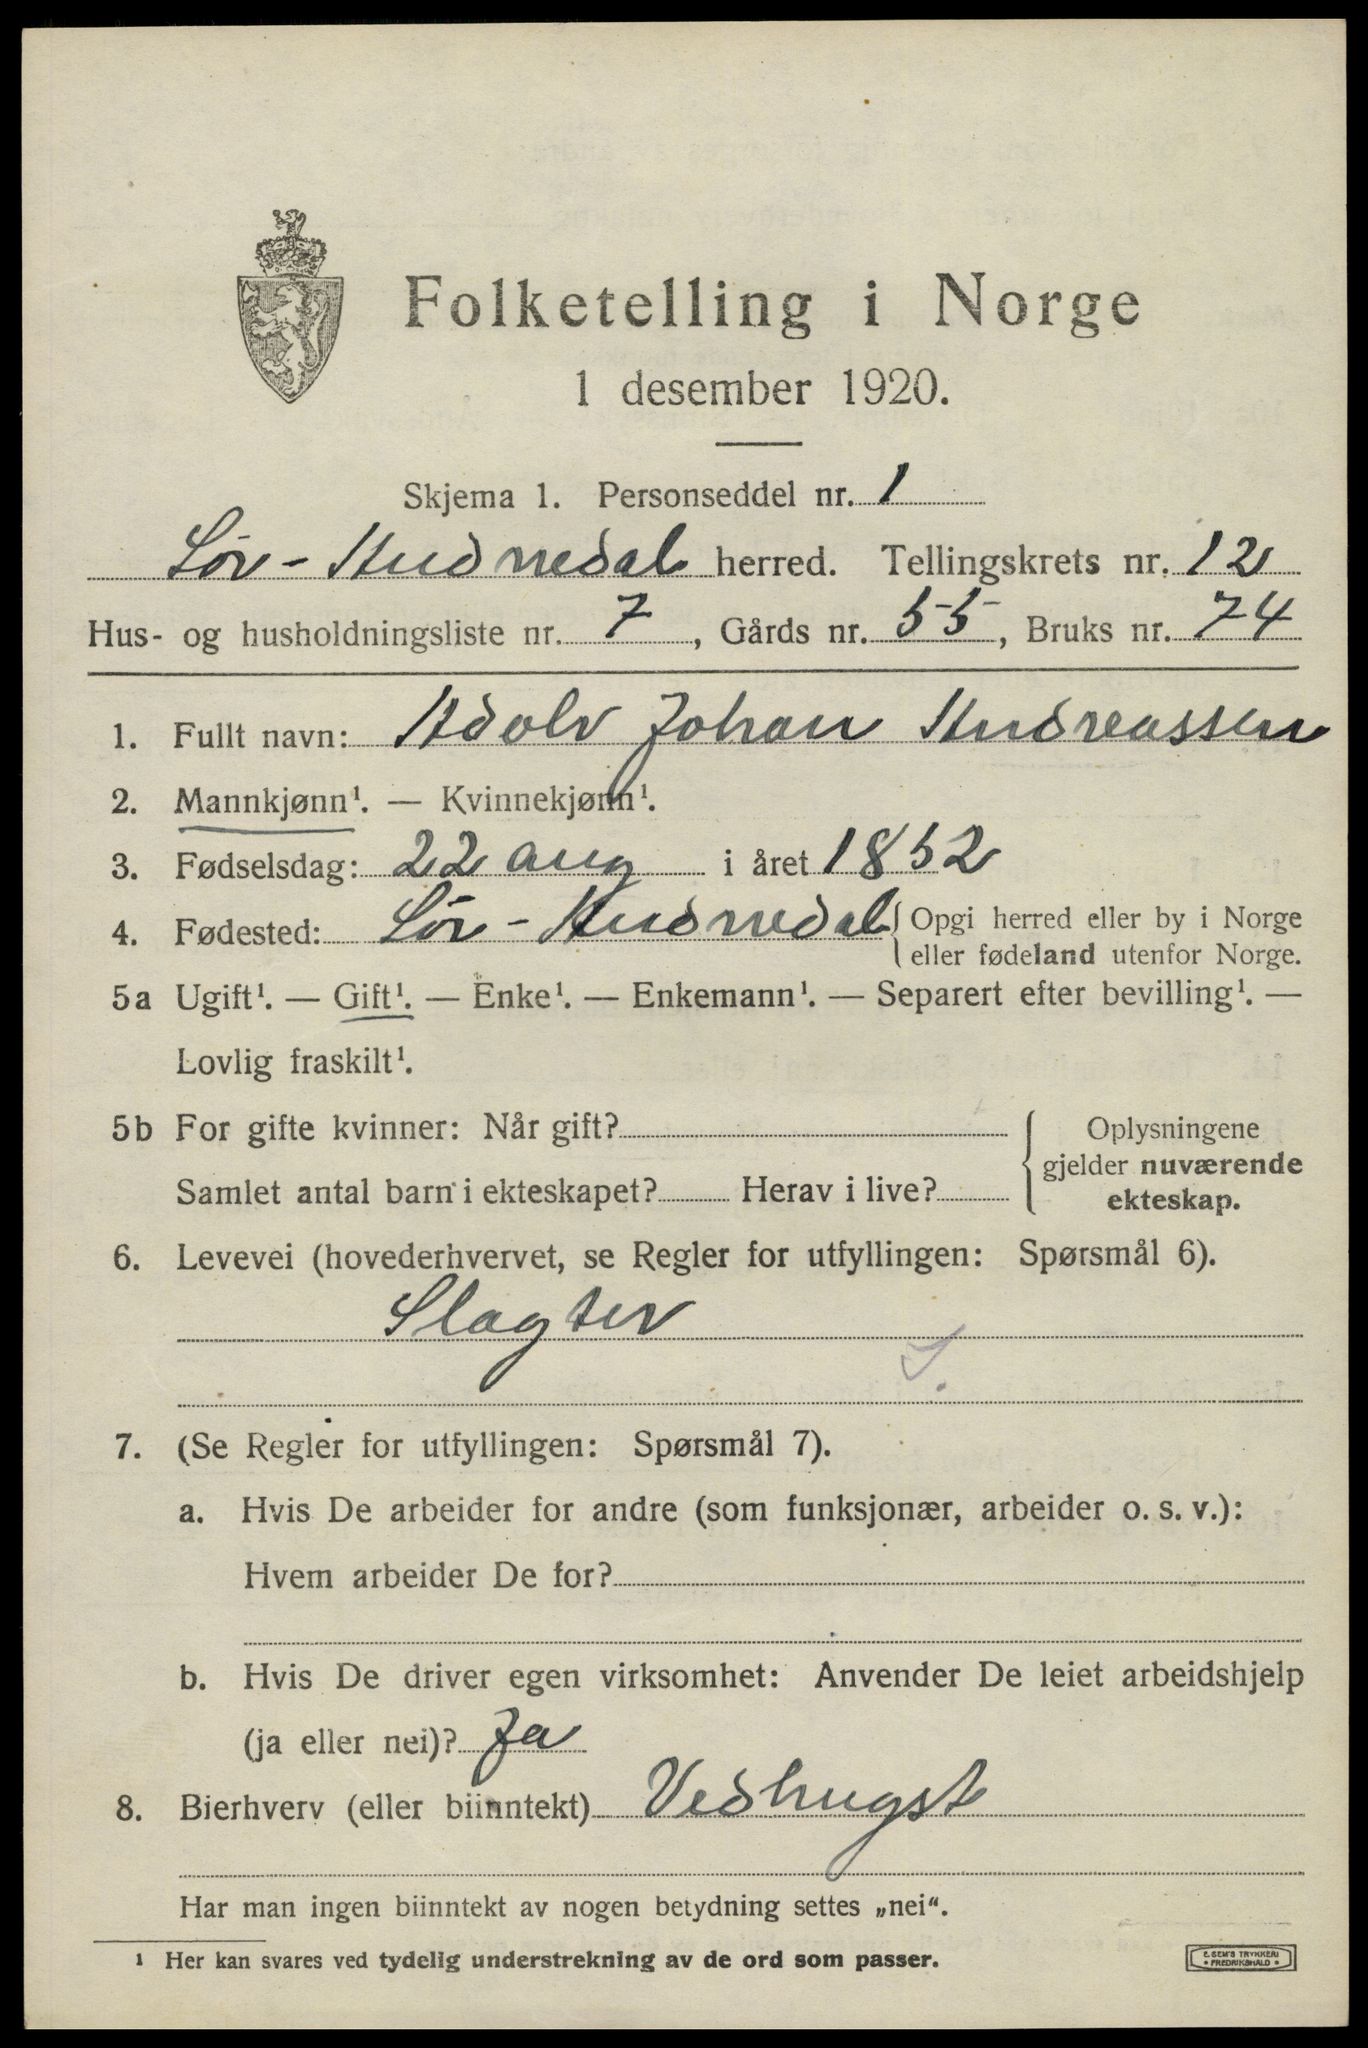 Folketelling i Norge
1 desember 1920.
Skjema 1. Personseddel nr. 1
Sör-Audnedal herred. Tellingskrets nr. 12
Hus- og husholdningsliste nr. 7, Gårds nr. 55, Bruks nr. 74
1. Fullt navn: Adolv Johan Andreassen
2. Mannkjønn¹. — Kvinnekjønn¹.
3. Fødselsdag: 22 aug i året 1852
4. Fødested: Sör-Audnedal { Opgi herred eller by i Norge
eller fødeland utenfor Norge.
5a Ugift¹. — Gift¹. — Enke¹. — Enkemann¹. — Separert efter bevilling¹. —
Lovlig fraskilt¹.
5b For gifte kvinner: Når gift?
Samlet antal barn i ekteskapet? Herav i live?
Oplysningene
gjelder nuværende
ekteskap.
6. Levevei (hovederhvervet, se Regler for utfyllingen: Spørsmål 6).
Slagter
S.
7. (Se Regler for utfyllingen: Spørsmål 7).
a. Hvis De arbeider for andre (som funksjonær, arbeider o. s. v.):
Hvem arbeider De for?
b. Hvis De driver egen virksomhet: Anvender De leiet arbeidshjelp
(ja eller nei)? Ja
8. Bierhverv (eller biinntekt) Vedhugst
Har man ingen biinntekt av nogen betydning settes „nei“.
¹ Her kan svares ved tydelig understrekning av de ord som passer.
E. SEM'S TRYKKERI
• FREDRIKSHALD •